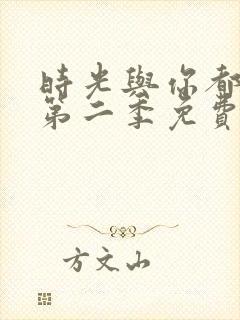 時光與你都
第二季免費
方文山